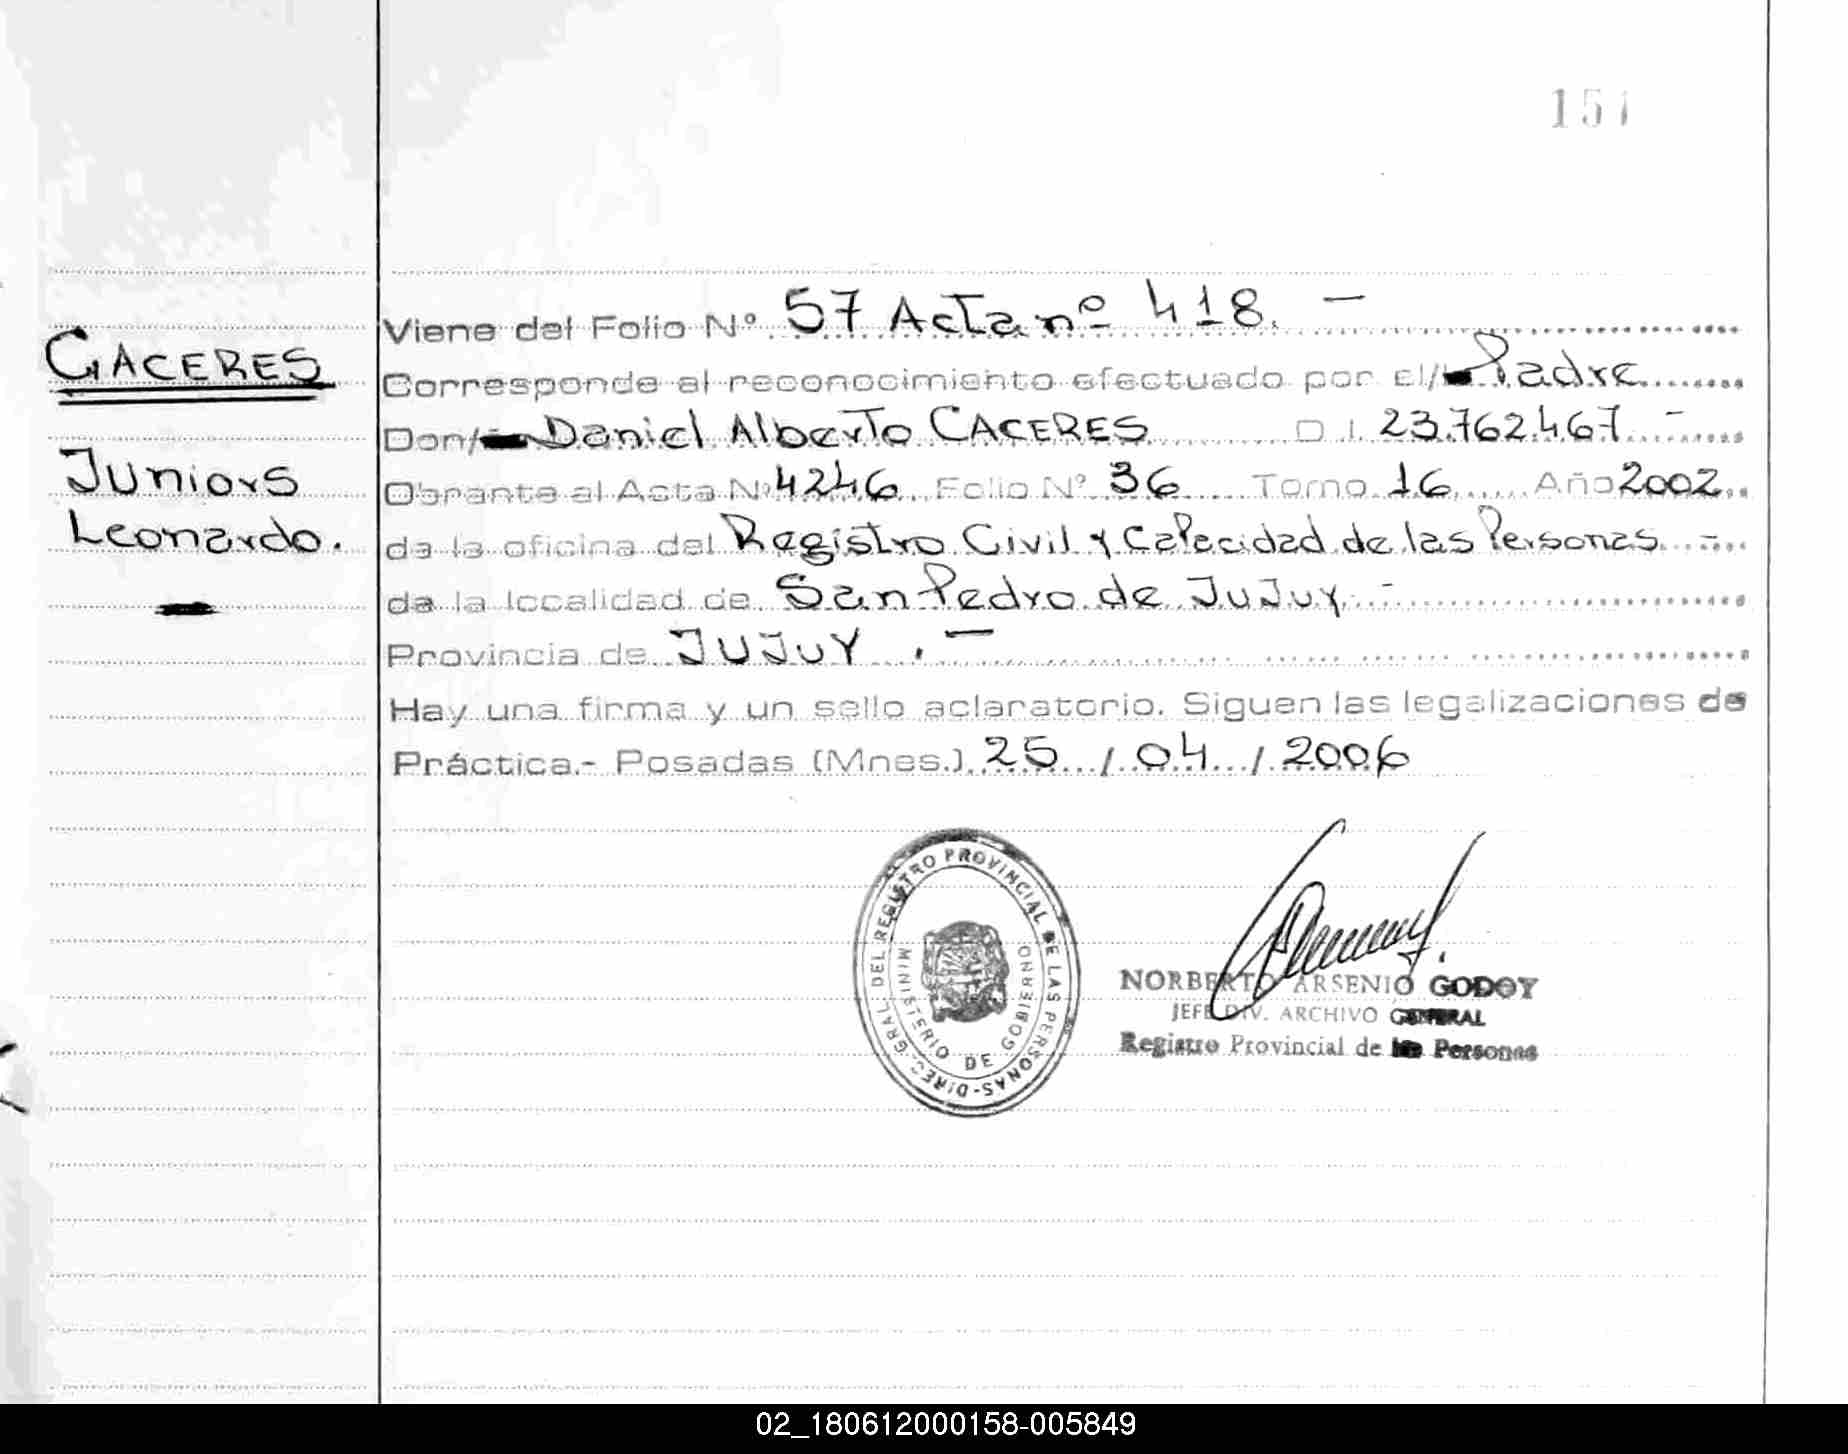 151
Viene del Folio Nº 57 Acta nº 418. —
CACERES
Corresponde al reconocimiento efectuado por el/ Padre
Don/ Daniel Alberto CACERES D.I. 23.762.467 -
Juniors
Obrante al Acta Nº 4246 Folio Nº 36 Tomo 16 Año 2002
Leonardo.
de la oficina del Registro Civil y Capacidad de las Personas -
de la localidad de San Pedro de JuJuy -
Provincia de JUJuY . —
Hay una firma y un sello aclaratorio. Siguen las legalizaciones de
Práctica.- Posadas (Mnes.) 25 / 04 / 2006
DIREC. GRAL. DEL REGISTRO PROVINCIAL DE LAS PERSONAS
MINISTERIO DE GOBIERNO
NORBERTO ARSENIO GODOY
JEFE DIV. ARCHIVO GENERAL
Registro Provincial de las Personas
02_180612000158-005849